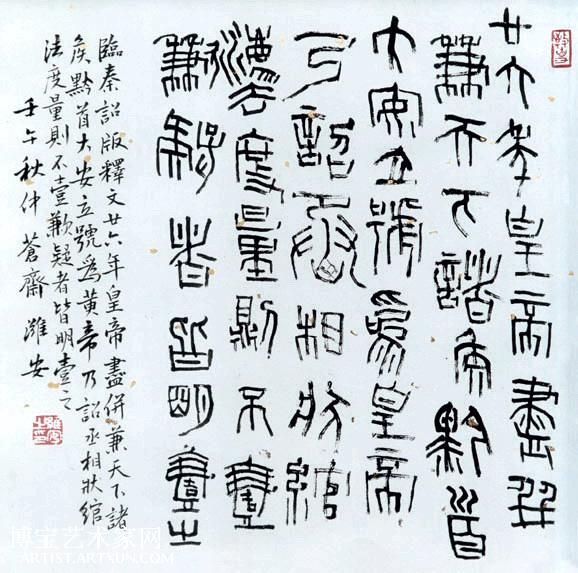 廿六年皇帝盡并
兼天下諸侯黔首
大安立號爲皇帝
乃詔丞相狀綰
灋度量則不壹
歉疑者皆明壹之
臨秦詔版釋文廿六年皇帝盡併兼天下諸
侯黔首大安立號爲黄帝乃詔丞相狀綰
法度量則不壹歉疑者皆明壹之
壬午秋仲蒼齋濰安
博宝艺术家网
ARTIST.ARTXUN.COM